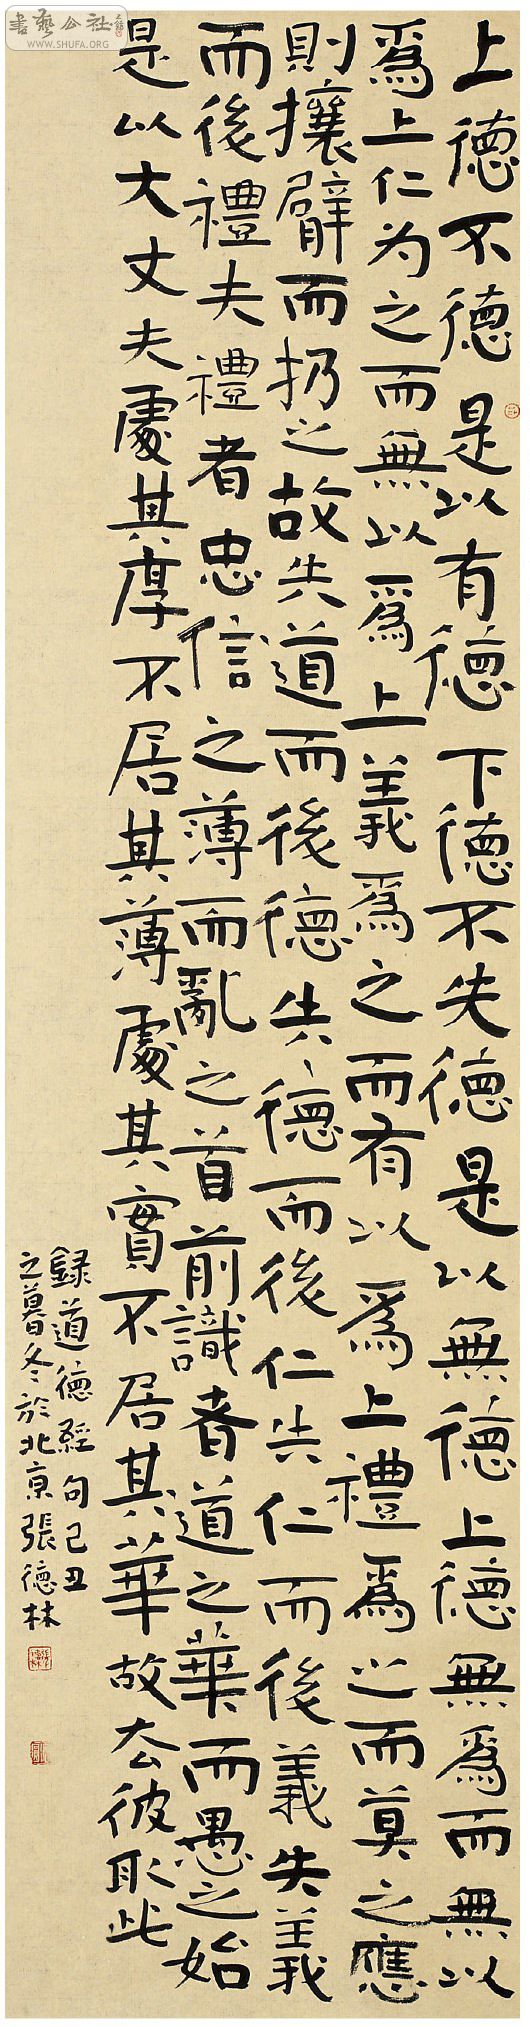 上德不德是以有德下德不失德是以無德上德無爲而無以
爲上仁为之而無以爲上義爲之而有以爲上禮爲之而莫之應
則攘臂而扔之故失道而後德失德而後仁失仁而後義失義
而後禮夫禮者忠信之薄而亂之首前識者道之華而愚之始
是以大丈夫處其厚不居其薄處其實不居其華故去彼取此
録道德經句己丑
之暮冬於北京張德林
書藝公社
WWW.SHUFA.ORG